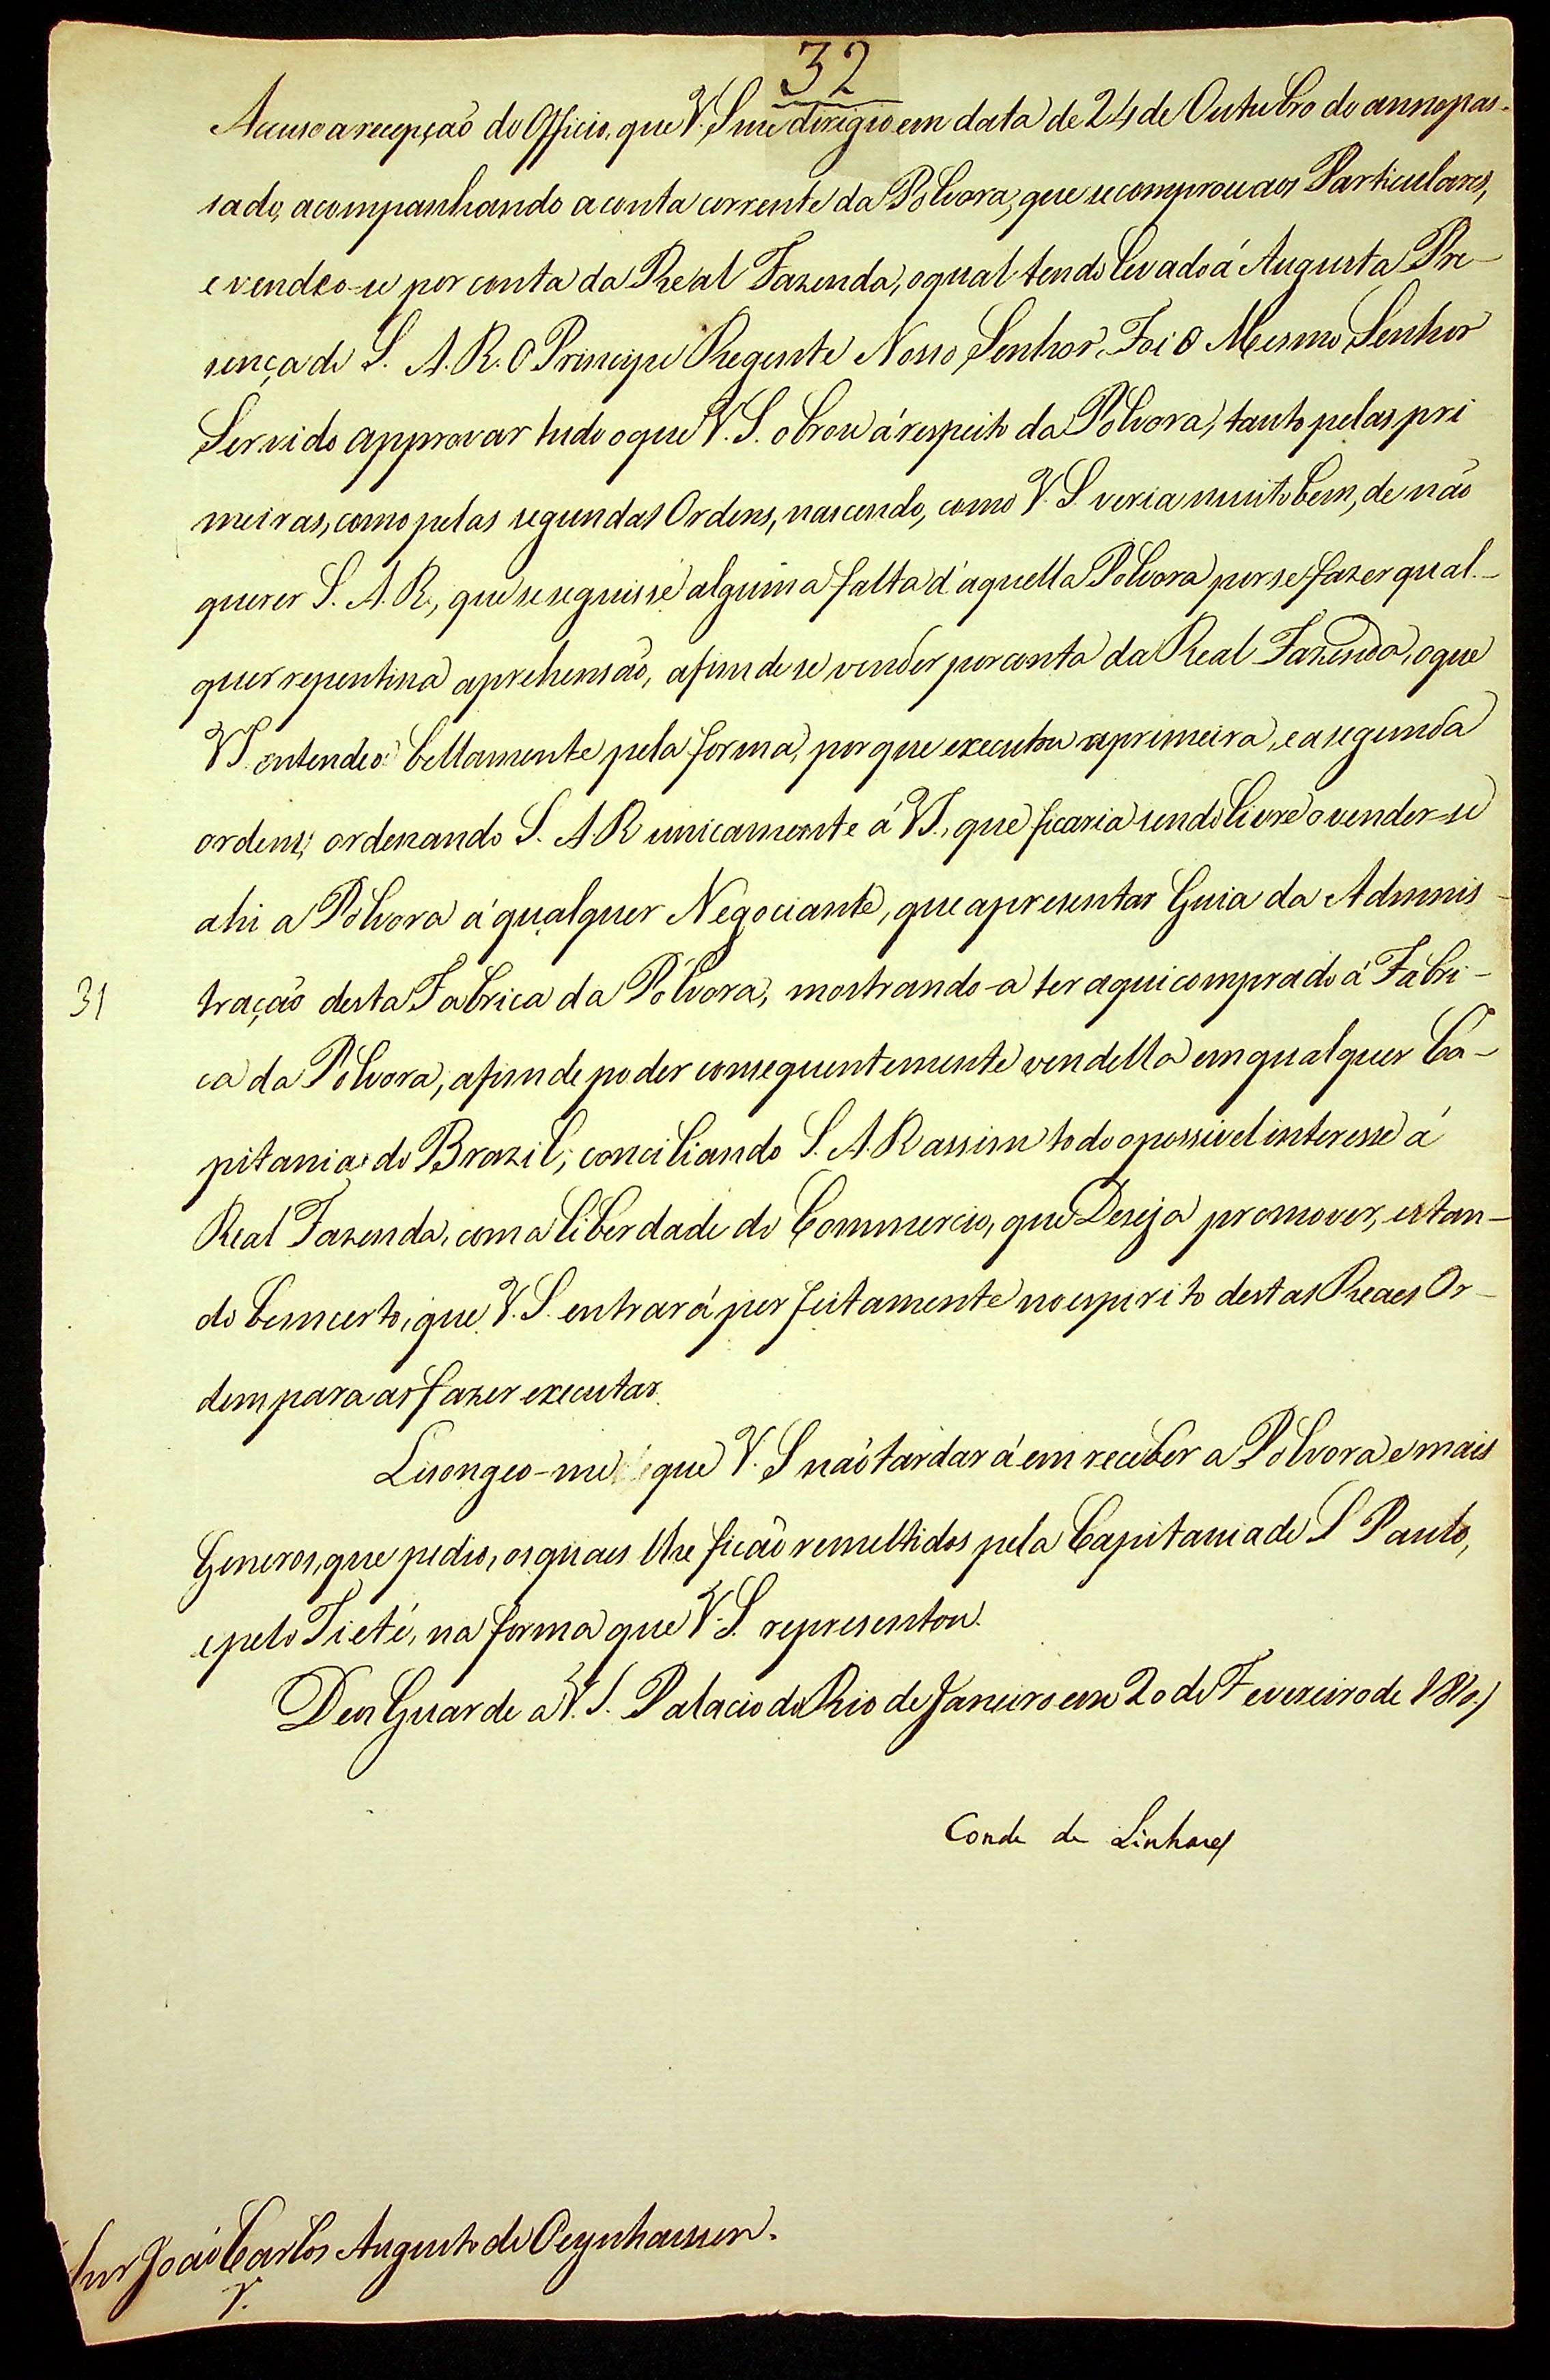 32
Accuso a recepção do Officio, que V. S. me dirigio em data de 24 de Outubro do anno pas-
sado, acompanhando a conta corrente da Pólvora, que se comprou aos Particulares,
e vendeo-se por conta da Real Fazenda, o qual tendo levado á Augusta Pre-
sença de S. A. R. O Principe Regente Nosso Senhor, Foi O Mesmo Senhor
Servido approvar tudo o que V. S. obrou á respeito da Pólvora, tanto pelas pri
meiras, como pelas segundas Ordens, nascendo, como V. S. veria muito bem, de não
querer S. A. R., que se seguisse alguma falta d'aquella Pólvora por se fazer qual-
quer repentina aprehensão, afim de se vender por conta da Real Fazenda, o que
V S. entendeo bellamente pela forma, porque executou a primeira, e a segunda
ordens; ordenando S. A. R unicamente á V S., que ficaria sendo livre o vender-se
ahi a Pólvora á qualquer Negociante, que apresentar Guia da Adminis-
31 tração desta Fabrica da Pólvora, mostrando-a ter aqui comprado á Fabri-
ca da Pólvora, afim de poder consequentemente vendella em qualquer Ca-
pitania do Brazil; conciliando S. A. R assim todo o possivel interesse á
Real Fazenda, com a liberdade do Commercio, que Deseja promover, estan-
do bem certo, que V. S. entrará perfeitamente no espirito destas Reaes Or-
dens para as fazer executar.
Lisongeo-me que V. S não tardará em receber a Pólvora e mais
Generos, que pedio, os quaes lhe ficão remettidos pela Capitania de S Paulo,
e pelo Tieté, na forma que V. S. representou.
Deos Guarde a V. S. Palacio do Rio de Janeiro em 20 de Fevereiro de 1810.
Conde de Linhares
Snr João Carlos Augusto de Oeynhaussen.